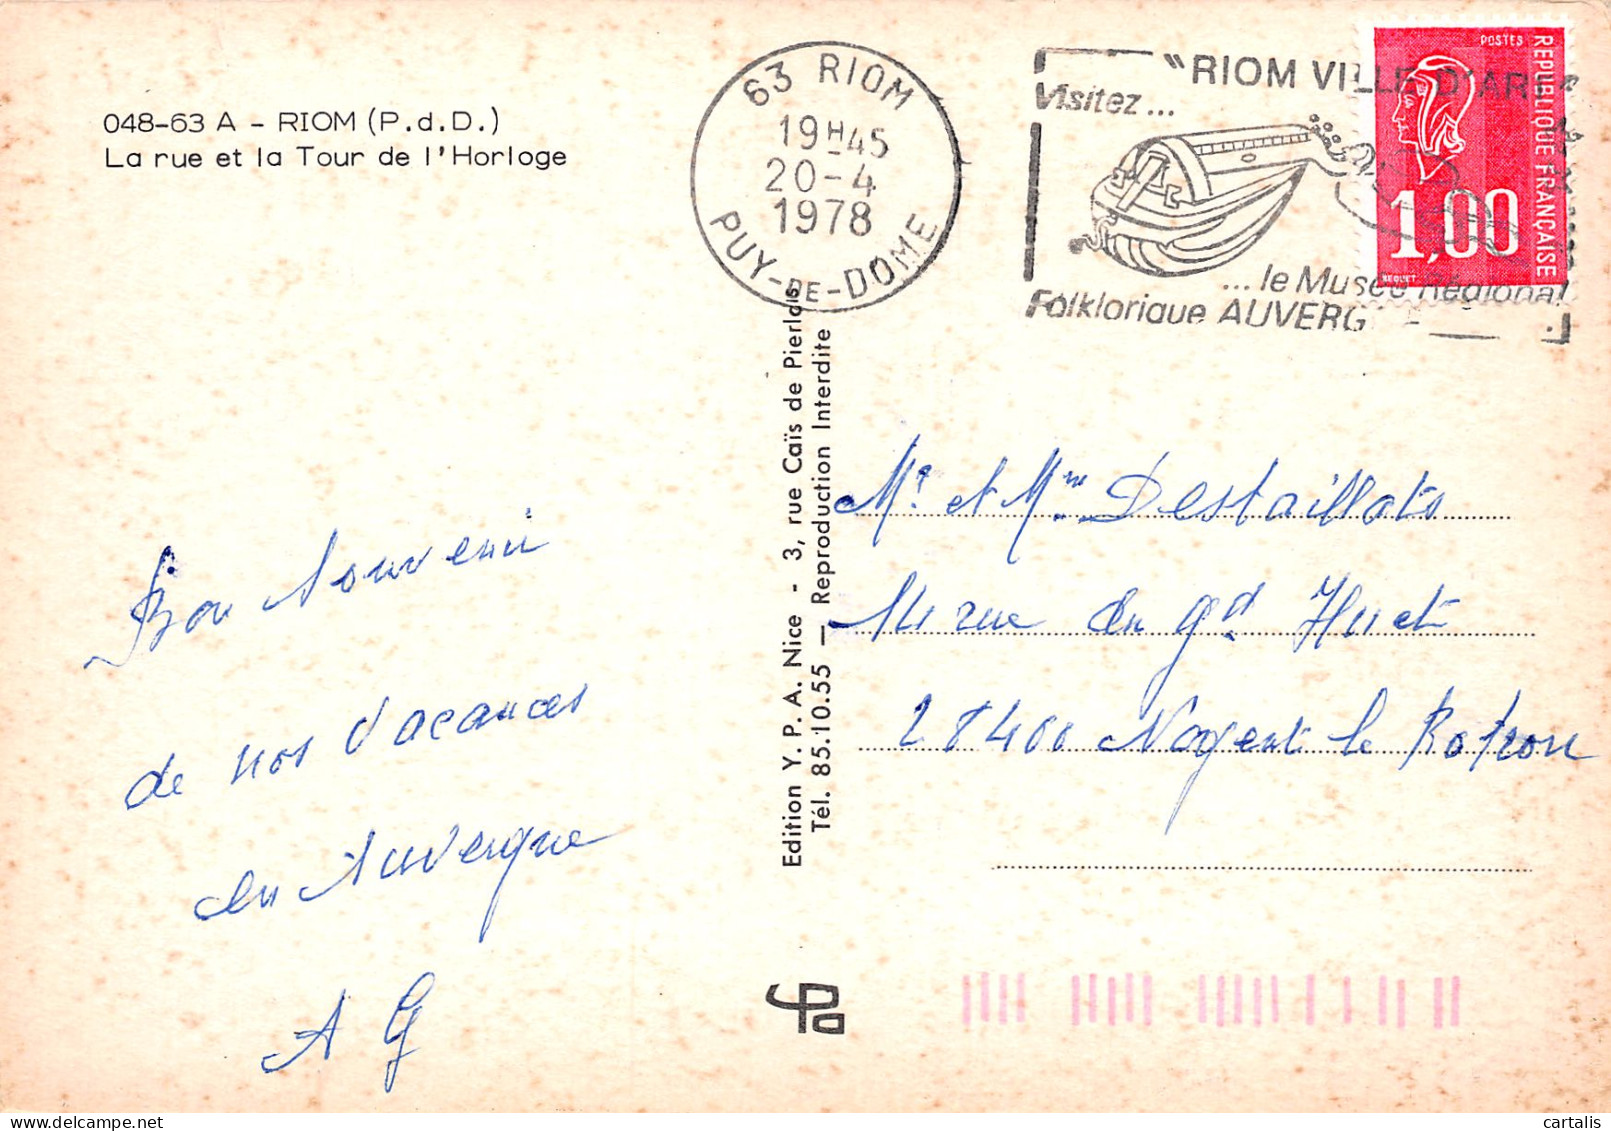 048-63 A - RIOM (P.d.D.)
La rue et la Tour de l'Horloge
63 RIOM
19H45
20-4
1978
PUY-DE-DOME
"RIOM VILLE D'ART
Visitez...
...le Musée Régional
Folklorique AUVERG
POSTES
REPUBLIQUE FRANÇAISE
1,00
BEQUET
Edition Y. P. A. Nice - 3, rue Caïs de Pierlas
Tél. 85.10.55 — Reproduction Interdite
Bon souvenir
de nos vacances
en Auvergne
A G
Mr et Mme Destaillats
rue du gd Huet
28400 Nogent le Rotrou
cartalis
delcampe.net